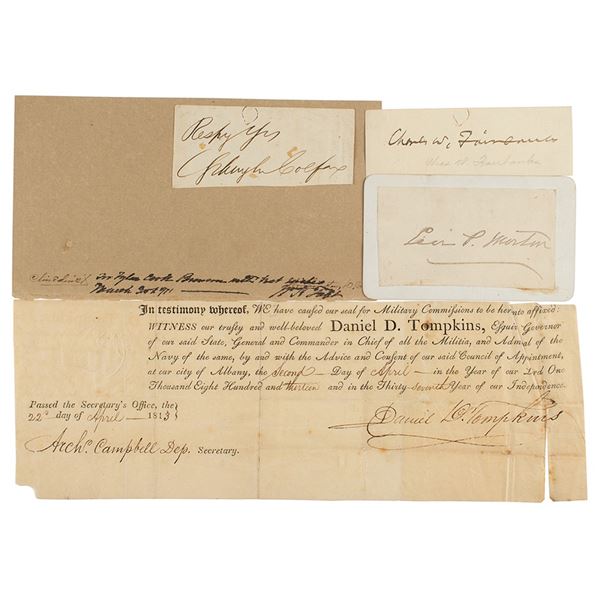 Respy Yrs
Schuyler Colfax
Charles W. Fairbanks
Chas W. Fairbanks
Levi P. Morton
for Tyler Cook Brown with best wishes
March 3rd 1911
In testimony whereof, WE have caused our seal for Military Commissions to be hereunto affixed:
WITNESS our trusty and well-beloved Daniel D. Tompkins, Esquire Governor
of our said State, General and Commander in Chief of all the Militia, and Admiral of the
Navy of the same, by and with the Advice and Consent of our said Council of Appointment,
at our city of Albany, the second Day of April in the Year of our Lord One
Thousand Eight Hundred and thirteen and in the Thirty-seventh Year of our Independence.
Passed the Secretary's Office, the
22d day of April 1813
Daniel D. Tompkins
Archd. Campbell Dep. Secretary.